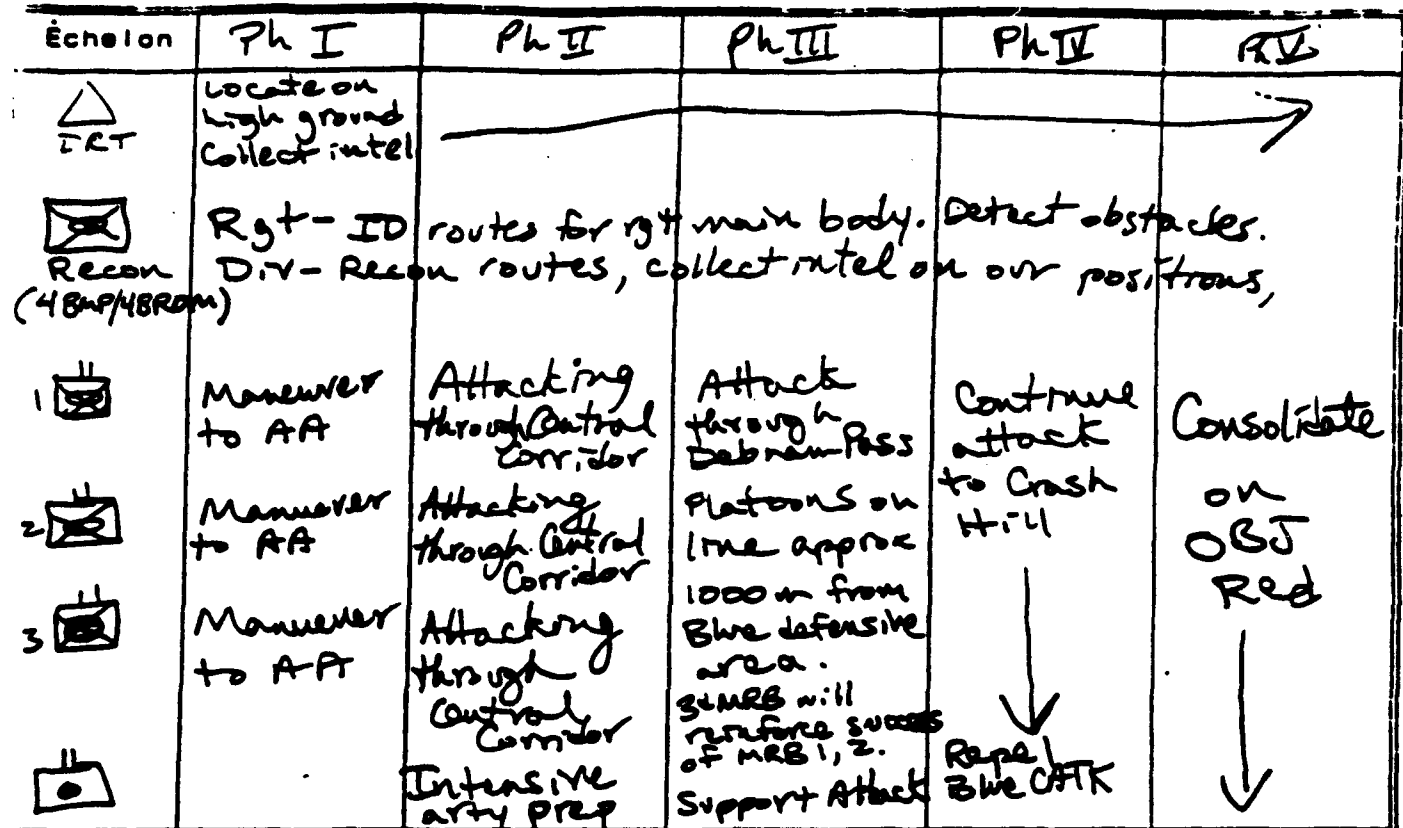 Echelon Ph I Ph II Ph III Ph IV Ph V
IRT
Locate on
high ground
Collect intel
Recon
(4BMP/4BRDM)
Rgt - ID routes for rgt main body. Detect obstacles.
Div - Recon routes, collect intel on our positions,
1
Maneuver
to AA
Attacking
through Central
Corridor
Attack
through
Debnam Pass
Continue
attack
to Crash
Hill
Consolidate
on
OBJ
Red
2
Manuever
to AA
Attacking
through Central
Corridor
Platoons on
line approx
1000 m from
Blue defensive
area.
3
Manuever
to AA
Attacking
through
Central
Corridor
3d MRB will
reinforce success
of MRB 1, 2.
Intensive
arty prep
Support Attack
Repel
Blue CATK